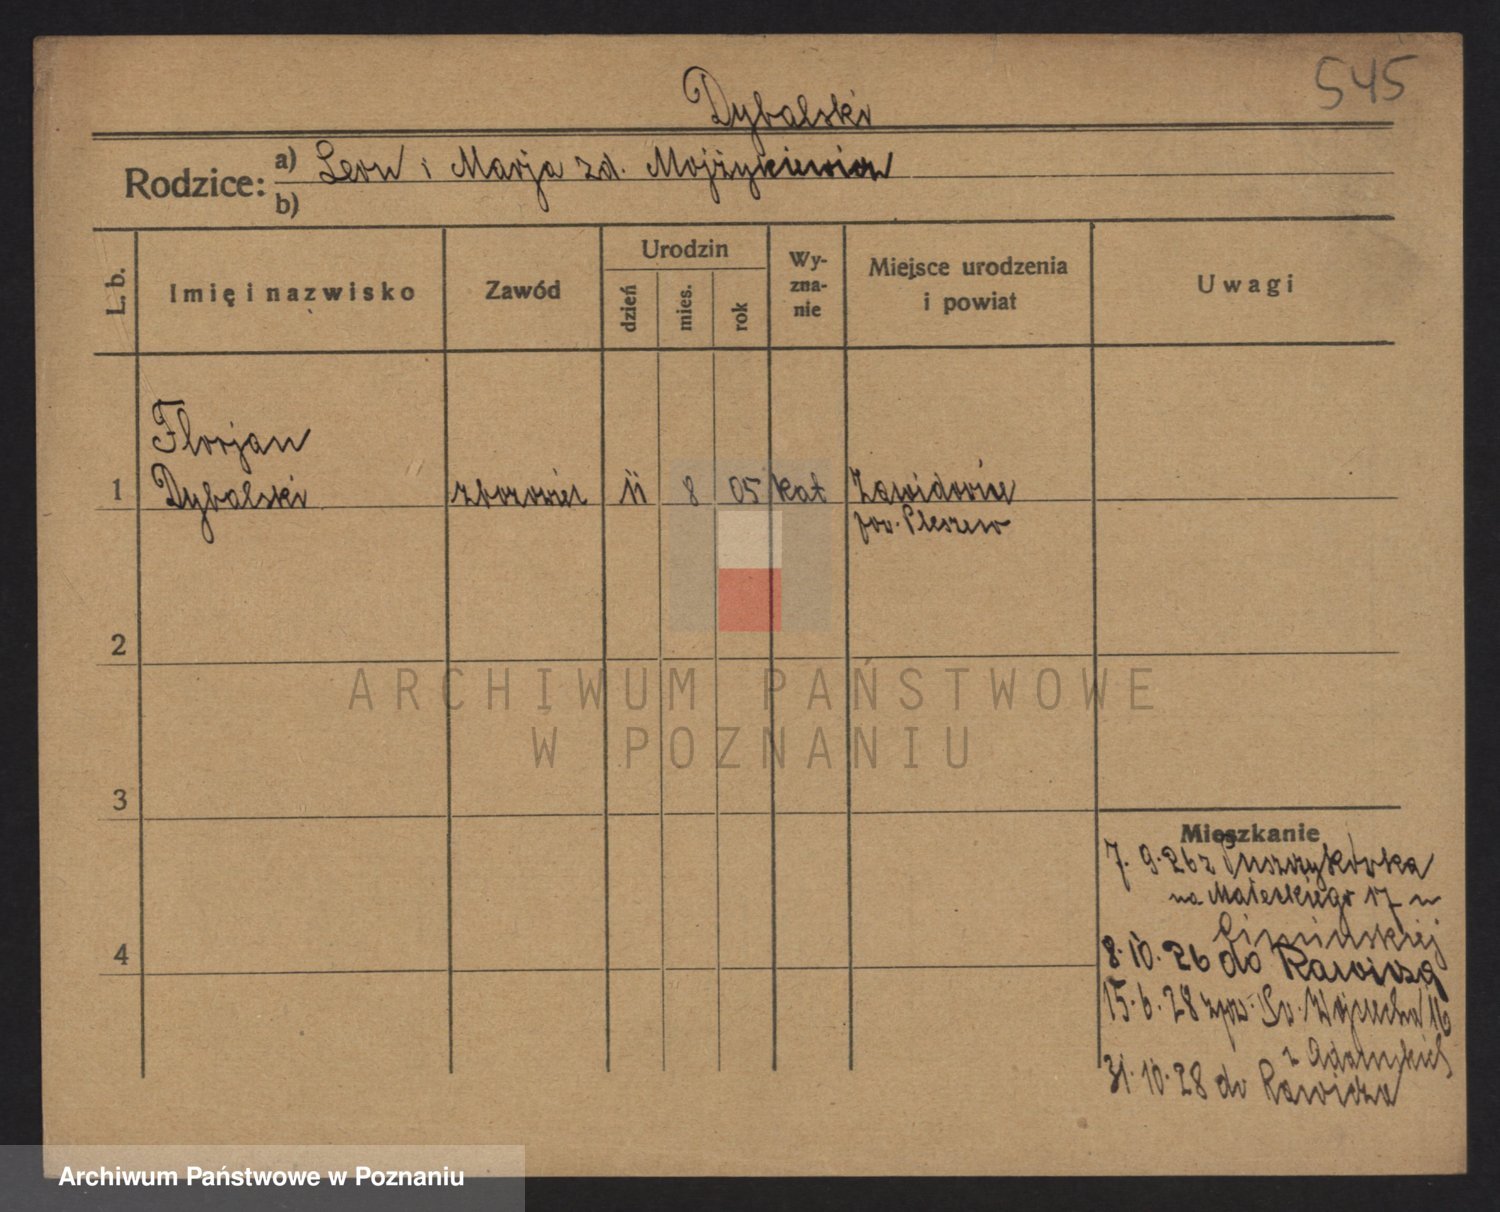 545
Dybalski
Rodzice: a) Leon i Marja zd. Mojżykiewicz
b)
L. b. Imię i nazwisko Zawód Urodzin dzień mies. rok Wy-zna-nie Miejsce urodzenia i powiat Uwagi
Florjan
1 Dybalski 11 8 05 kat Zawidowice
pow. Pleszew
2
ARCHIWUM PAŃSTWOWE
W POZNANIU
3
Mieszkanie
7. 9. 26 z Puszczykówka
na Małeckiego 17 u
4
8. 10. 26 do Rawicza
15. 6. 28 Św. Wojciecha 16
z Adamskich
31. 10. 28 do Rawicza
Archiwum Państwowe w Poznaniu